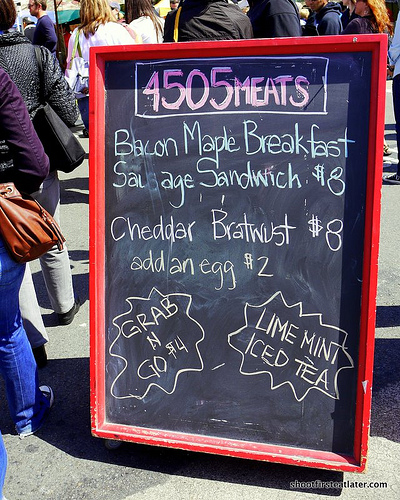 4505 MEATS
Bacon Maple Breakfast
Sausage Sandwich $8
Cheddar Bratwust $8
add an egg $2
GRAB
N
GO $4
LIME MINT
ICED TEA
shootfirsteatlater.com